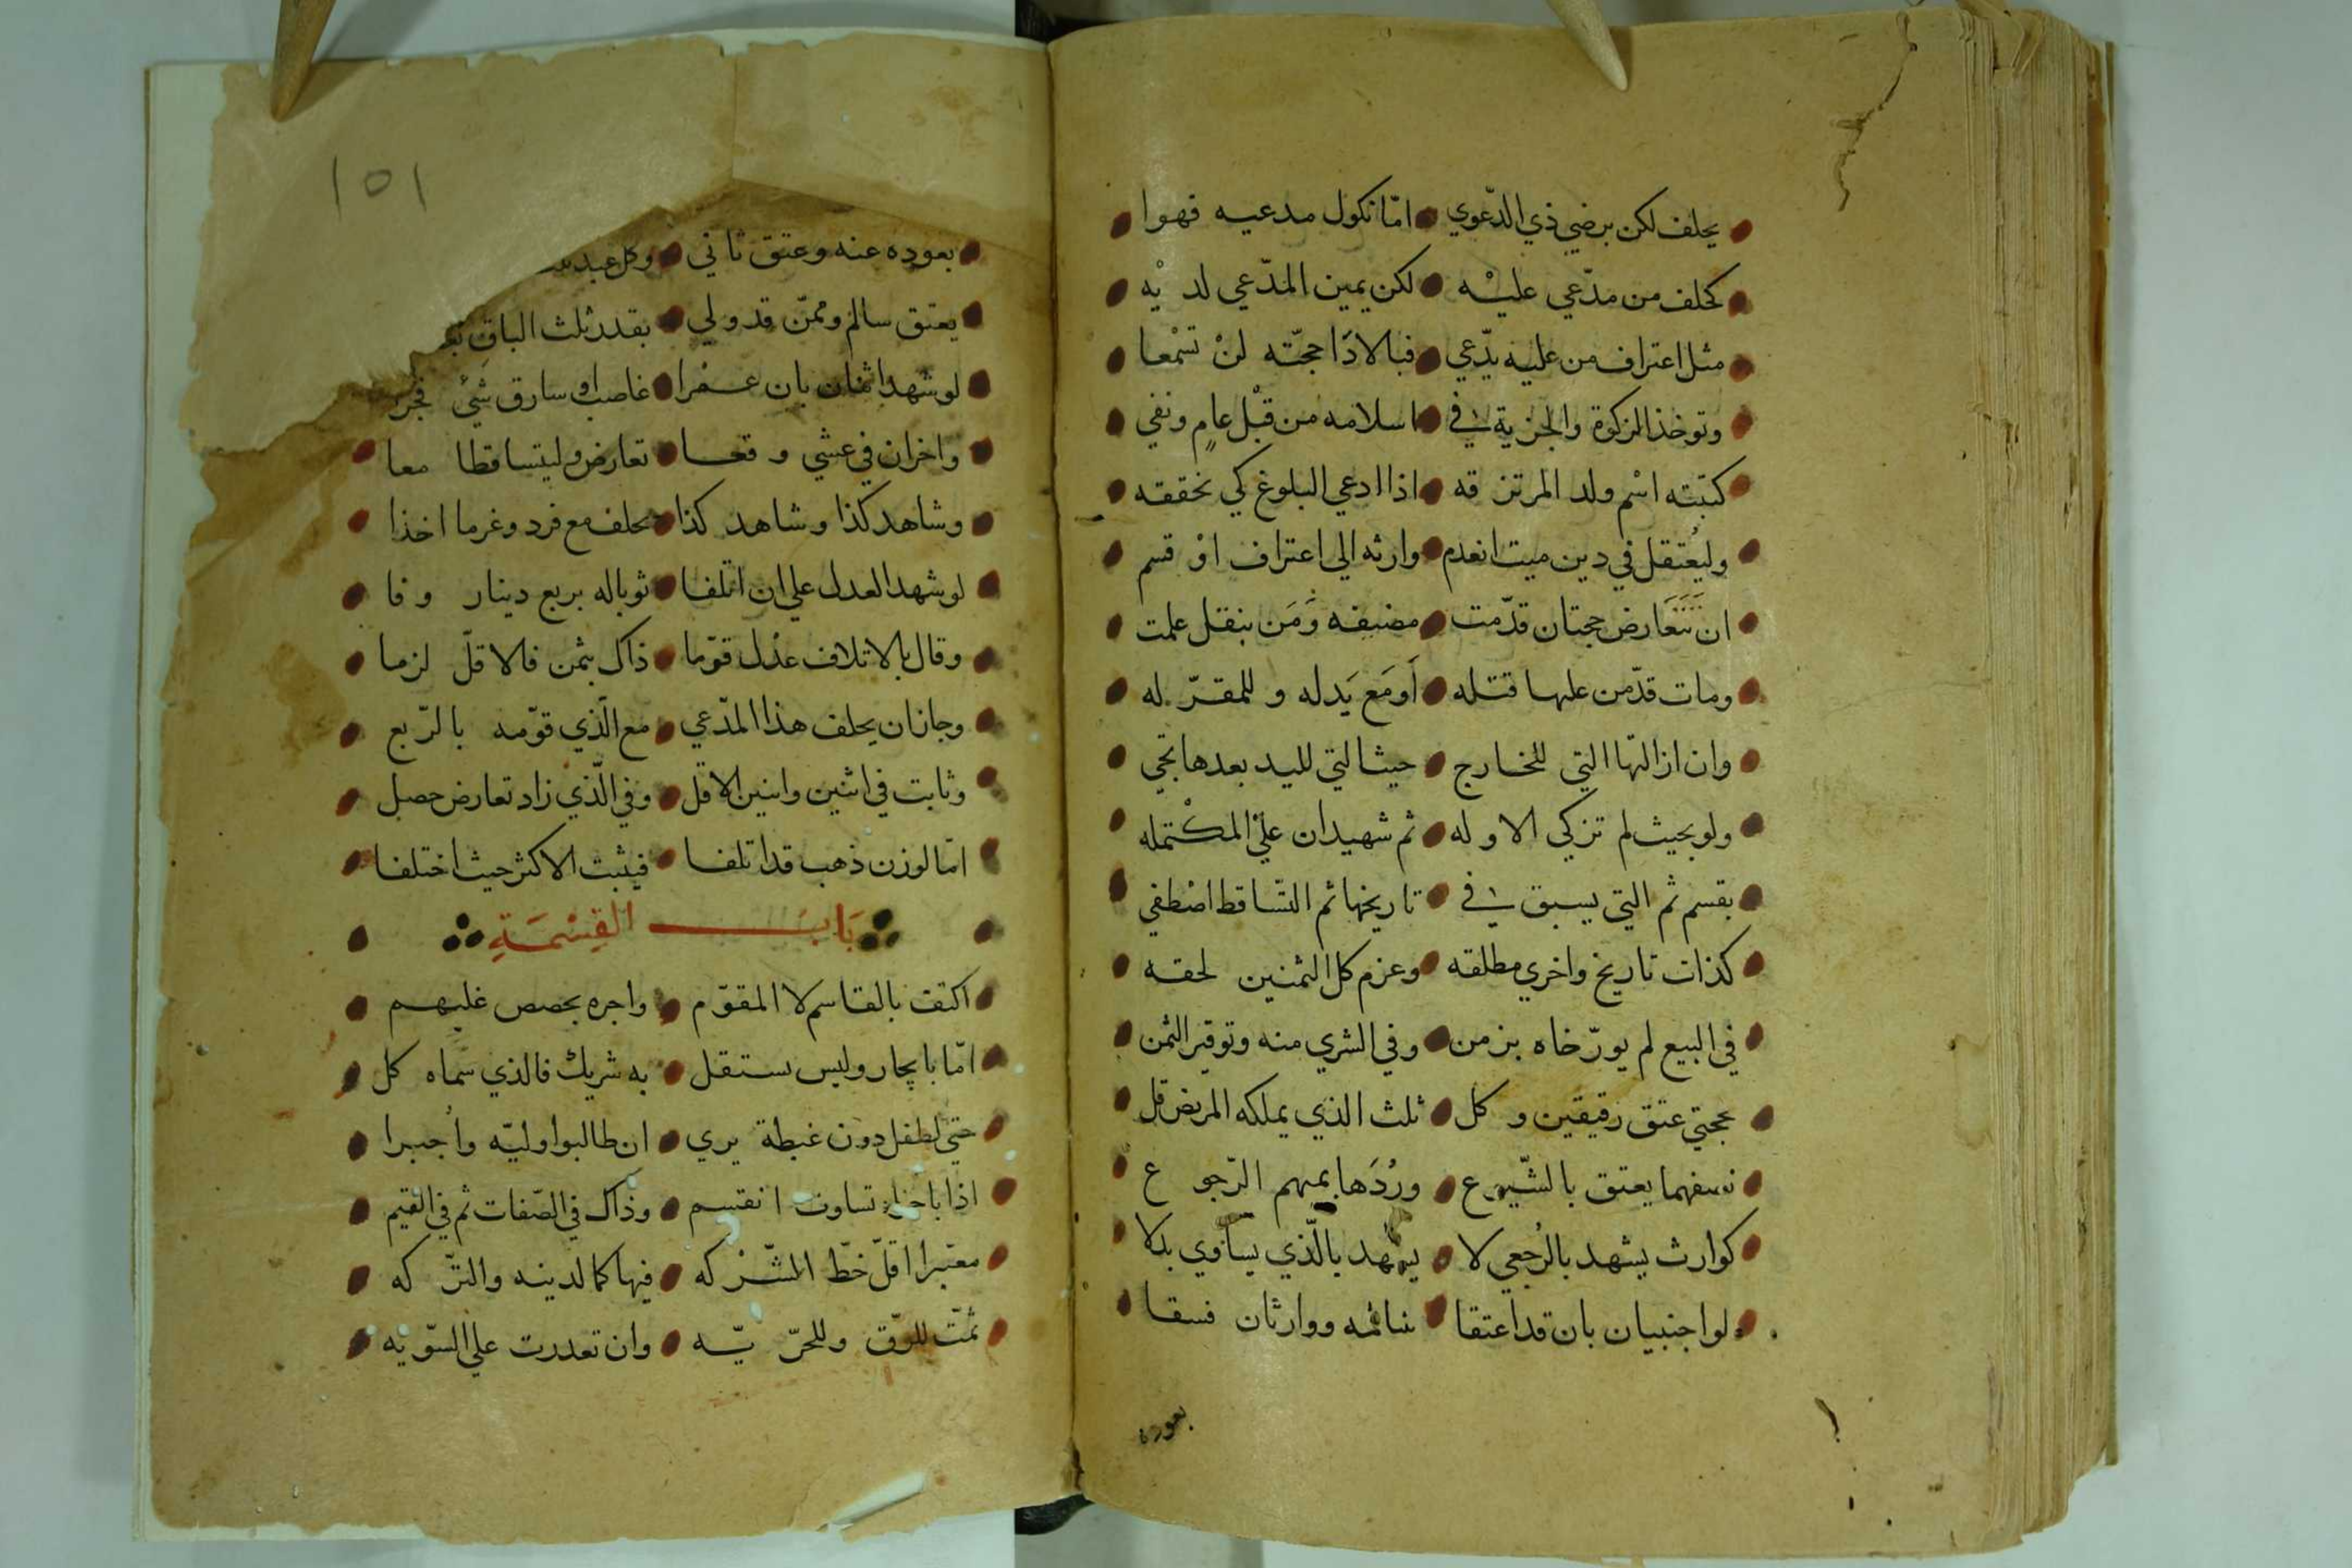 يحلف لكن برضي ذي الدّعوي امّا نكول مدعيه فهوا
كحلف من مدّعي عليْه لكن يمين المدّعي لديْه
مثل اعتراف من عليه يدّعي فبالادَا حجّته لنْ تسْمعا
وتوخذ الزكوة والجزية في اسلامه من قبْل عامٍ ونفي
كتبته اسْم ولد المرتزقه اذا ادعي البلوغ كي نحققه
وليُعتقل في دين ميت انعدم وارثه الي اعتراف اوْ قسم
ان تتَعَارض حجتان قدّمت مضيفه وَمَن بنقل علمت
ومات قدّمن عليها قتله أومَع يَدله وللمقرّ له
وان ازالتها التي للخارج حيث التي لليد بعدها تجي
ولو بحيث لم تزكي الاوله ثم شهيدان عليْ المكْتمله
بقسم ثم التي يسبق في تاريخها ثم التّساقط اصْطفي
كذات تاريخ واخري مطلقه وعزم كل الثمنين لحقه
في البيع لم يورّخاه بزمن وفي الشري منه وتوقير الثمن
بحجتي عتق رقيقين وكل ثلث الذي يملكه المريض قل
نصفهما يعتق بالشّيوع ورُدَها بمبهم الرّجوع
كوارث يشهد بالرُجعي لا يشهد بالّذي يساوي بدلا
لو اجنبيان بان قد اعتقا غنائمه ووارثان فسقا
بعوده
١٥١
بعوده عنه وعتق ثاني وكل عبد
يعتق سالم وممّن قد ولي بقدر ثلث الباقي
لو شهد اثنان بان عـمرا غاصب او سارق شَيْ فجرَ
واخران في عشي وقعا تعارض وليتساقطا معا
وشاهد كذا وشاهد كذا يحلف مع فرد وغرما اخذا
لو شهد العدل علي ان اتلفا ثوباله بربع دينار وفا
وقال بالاتلاف عدْل قوّما ذاك بثمن فالاقلّ لزما
وجازان يحلف هذا المدّعي مع الّذي قوّمه بالرّبع
وثابت في اثنين واثنين الاقل وفي الّذي زاد تعارض حصل
امّا لوزن ذهب قد اتلفا فيثبت الاكثر حيث اختلفا
بَابُ القِسْمَةِ
اكتف بالقاسم لا المقوّم واجره بحصص عليهم
امّا بايجار وليس يستقل به شريك فالذي سَماه كل
حتي لطفل دون غبطة يري ان طالبوا وليّه واُجبرا
اذا باجزاء تساوت انقسم وذاك في الصّفات ثم في القيم
معتبرا اقلّ حَظّ الشّرْكه فيها كما لدينه والتّركه
ثمّت للرّق وللحرّيّه وان تعددرت علي السّويه